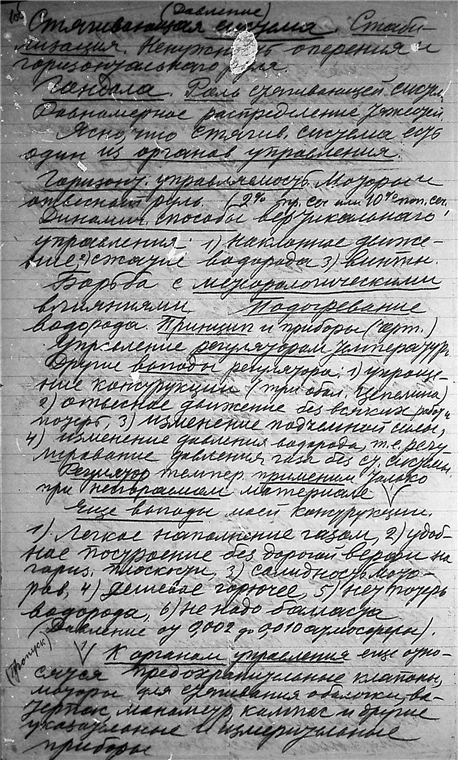 (Давление)
Стягивающая система. Стаби-
лизация. Ненужность оперения и
горизонтального руля.
Гандола. Роль стягивающей систем.
Равномерное распределение тяжестей
Ясно, что стягив. система есть
один из органов управления.
Горизонт. управляемость. Моторы и
отвесный руль.
Динамич. способы вертикального
управления: 1) наклонное движе-
ние 2) сжатие водорода 3) винты.
Борьба с метеорологическими
влияниями Подогревание
водорода. Принцип и приборы (черт.)
Управление регулятором температур.
Другие выгоды регулятора: 1) упроще-
ние конструкции (три обол. Цепелина)
2) отвесное движение без всяких
потерь, 3) изменение подъемной силы,
4) изменение давления водорода, т.е. регу-
лирование давления газа без ст. системы.
Регулятор темпер. применим только
при несгораемом материале
Еще выгоды моей конструкции.
1) Легкое наполнение газом, 2) удоб-
ное построение без дорогой верфи на
гориз. плоскости, 3) солидность мото-
ров, 4) дешевое горючее, 5) нет потерь
водорода, 6) не надо балласта
Давление от 0,002 до 0,010 атмосферы).
(пропуск) К органам управления еще отно-
сятся предохранительные клапаны,
моторы для стягивания оболочки, ва-
терпас, манометр, компас и другие
указательные и измерительные
приборы